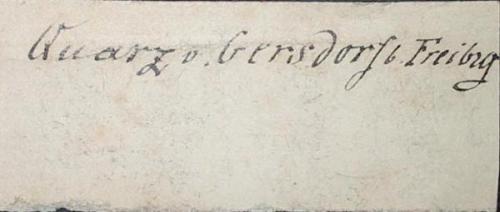 Quarz v. Gersdorf b. Freibrg